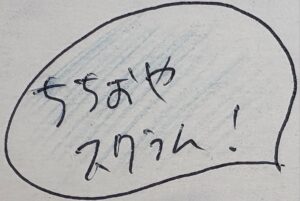 ちちおや
スクラム!